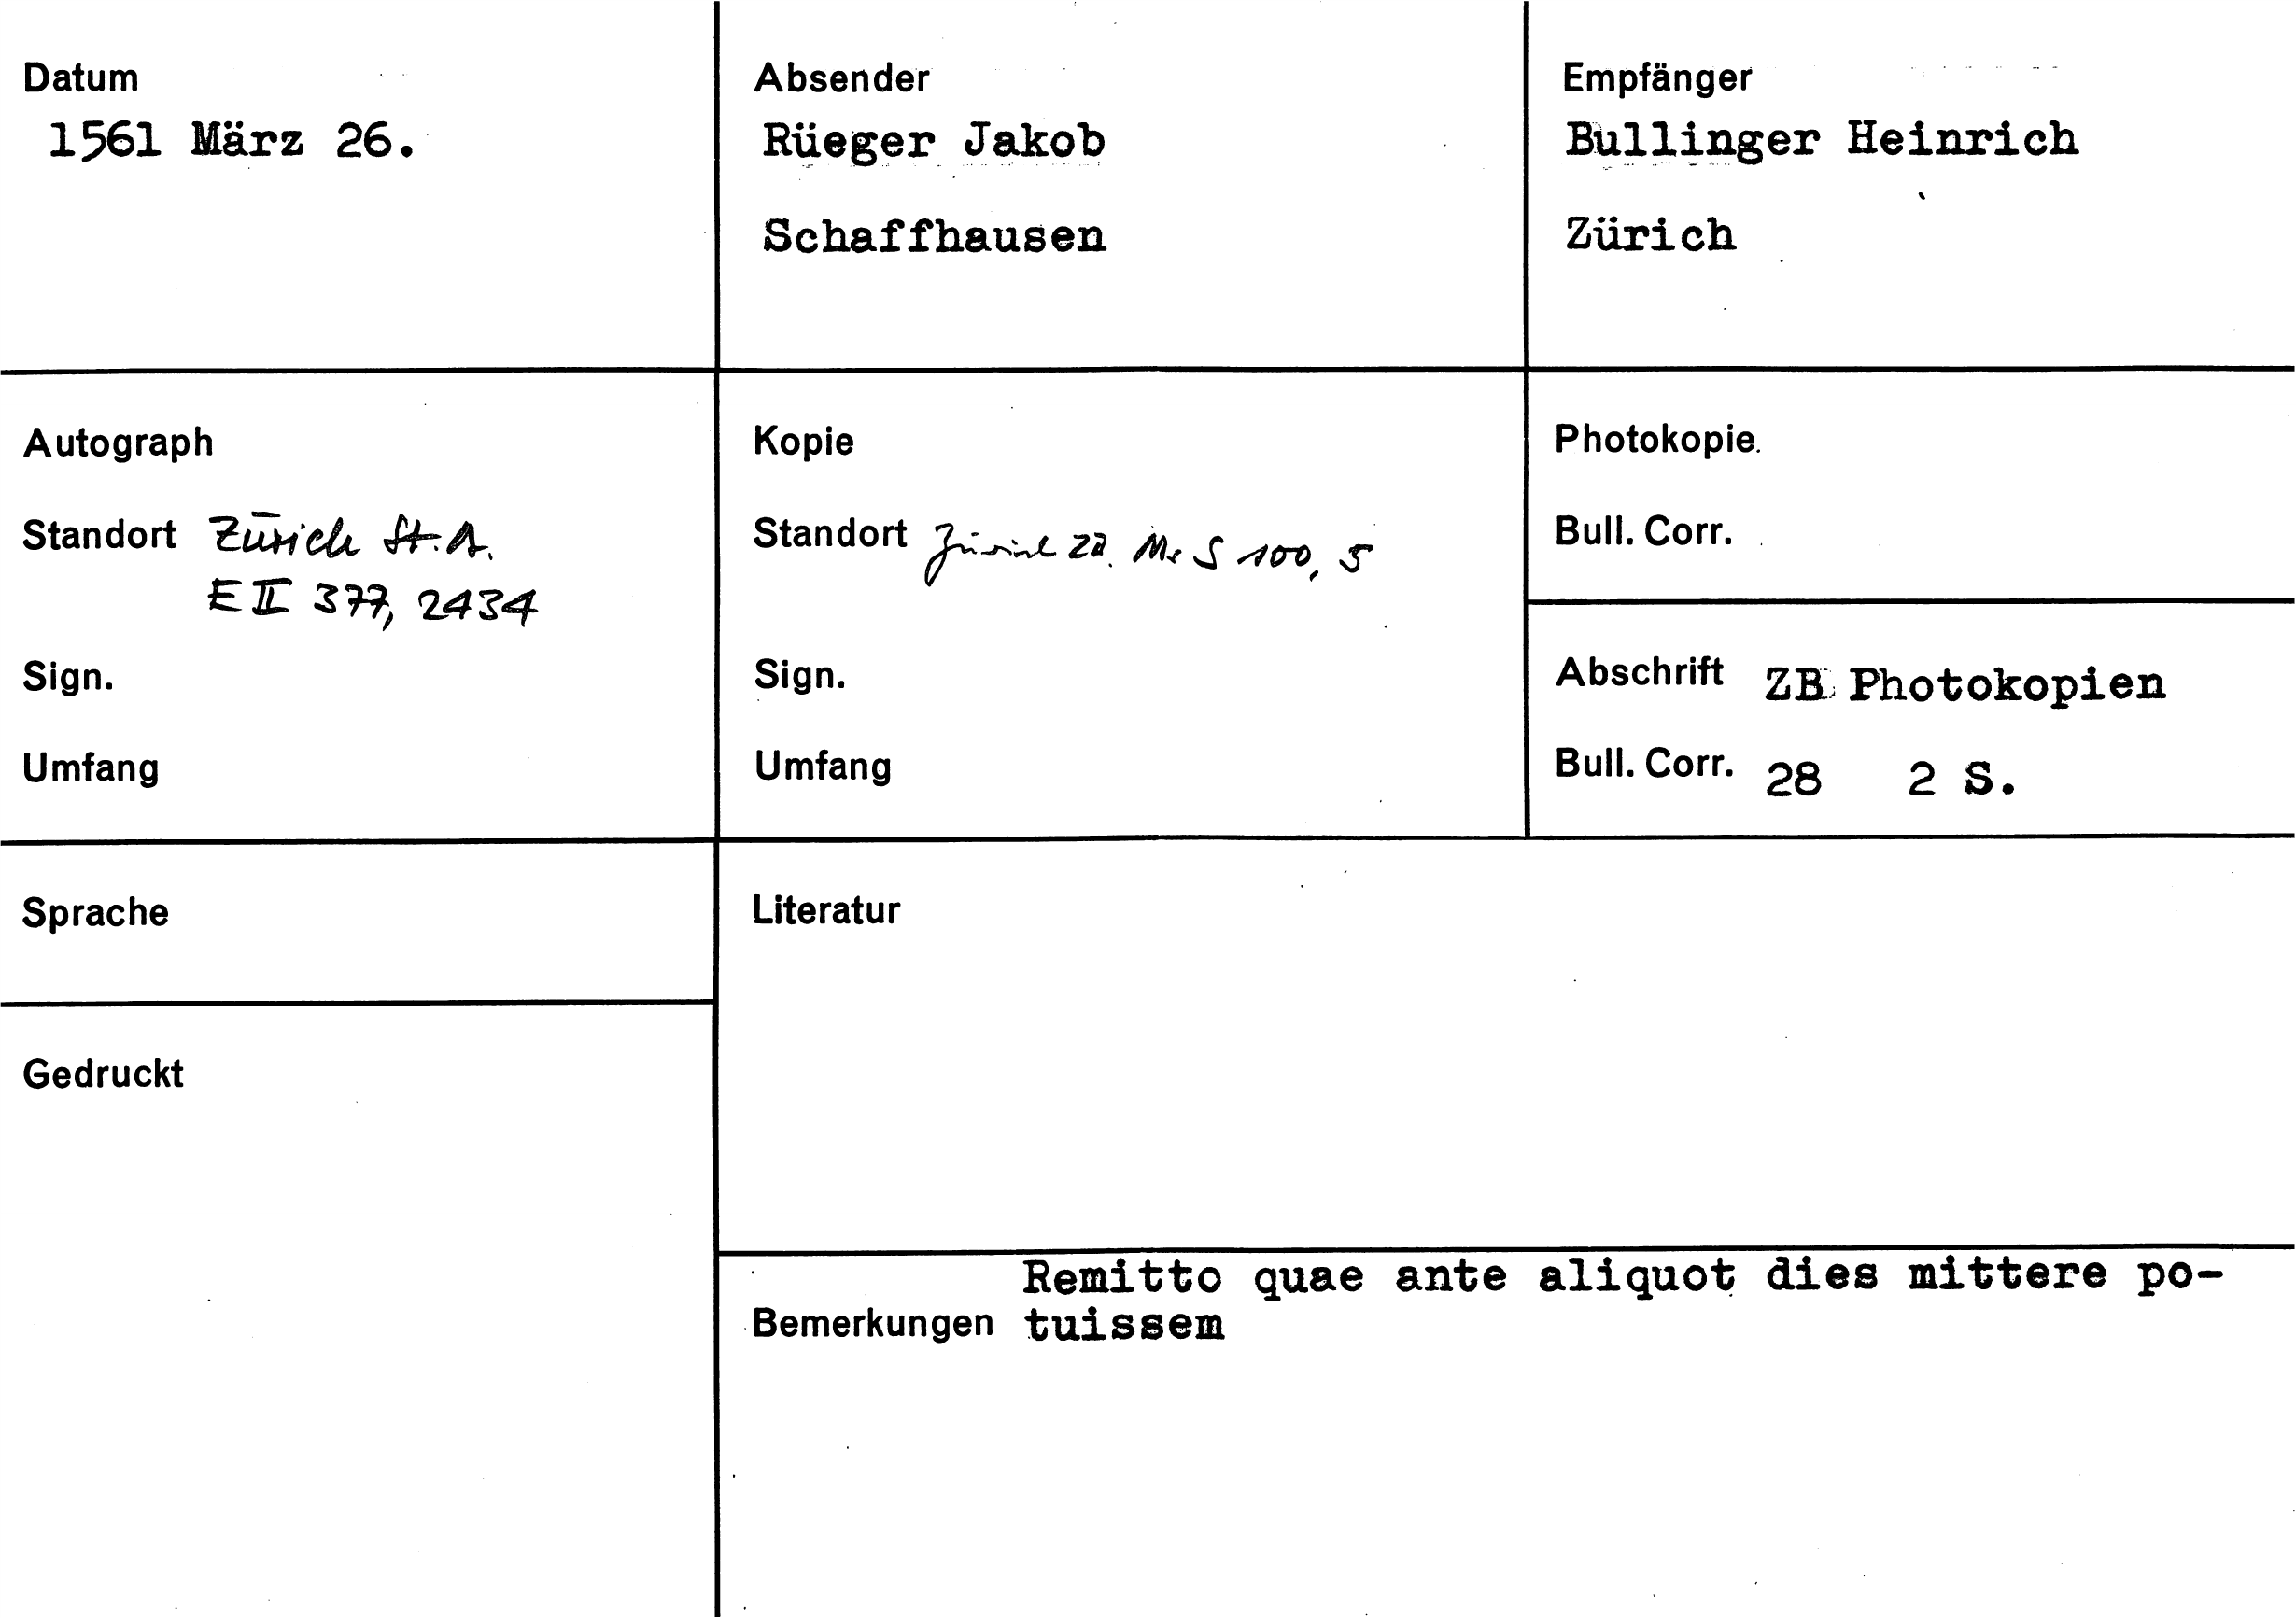 Datum
1561 März 26.
Absender
Rüeger Jakob
Schaffhausen
Empfänger
Bullinger Heinrich
Zürich
Autograph
Standort Zürich St.A.
E II 377, 2434
Sign.
Umfang
Kopie
Standort Zürich ZB. Ms S 100, 5
Sign.
Umfang
Photokopie.
Bull. Corr.
Abschrift ZB Photokopien
Bull. Corr. 28 2 S.
Sprache
Gedruckt
Literatur
Remitto quae ante aliquot dies mittere po-
Bemerkungen tuissem